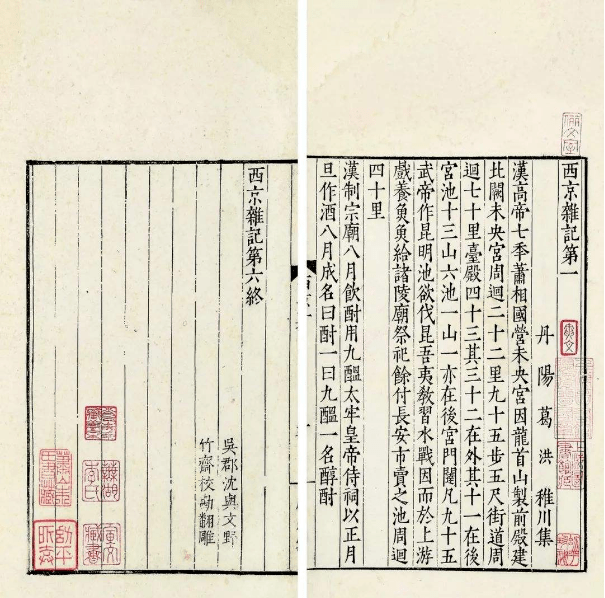 西京雜記第一
丹陽葛洪稚川集
漢高帝七年蕭相國營未央宮因龍首山製前殿建
北闕未央宮周迴二十二里九十五步五尺街道周
迴七十里臺殿四十三其三十二在外其十一在後
宮池十三山六池一山一亦在後宮門闥凡九十五
武帝作昆明池欲伐昆吾夷敎習水戰因而於上游
戲養魚魚給諸陵廟祭祀餘付長安市賣之池周迴
四十里
漢制宗廟八月飮酎用九醞太牢皇帝侍祠以正月
旦作酒八月成名曰酎一曰九醞一名醇酎
西京雜記第六終
吳郡沈與文野
竹齋校勘翻雕